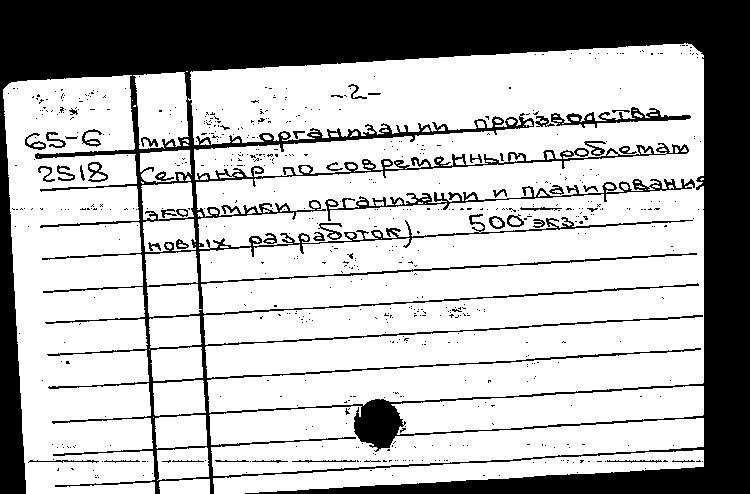 -2-
65-6 тики и организации производства.
2518 Семинар по современным проблемам
экономики, организации и планирования
новых разработок). 500 экз.